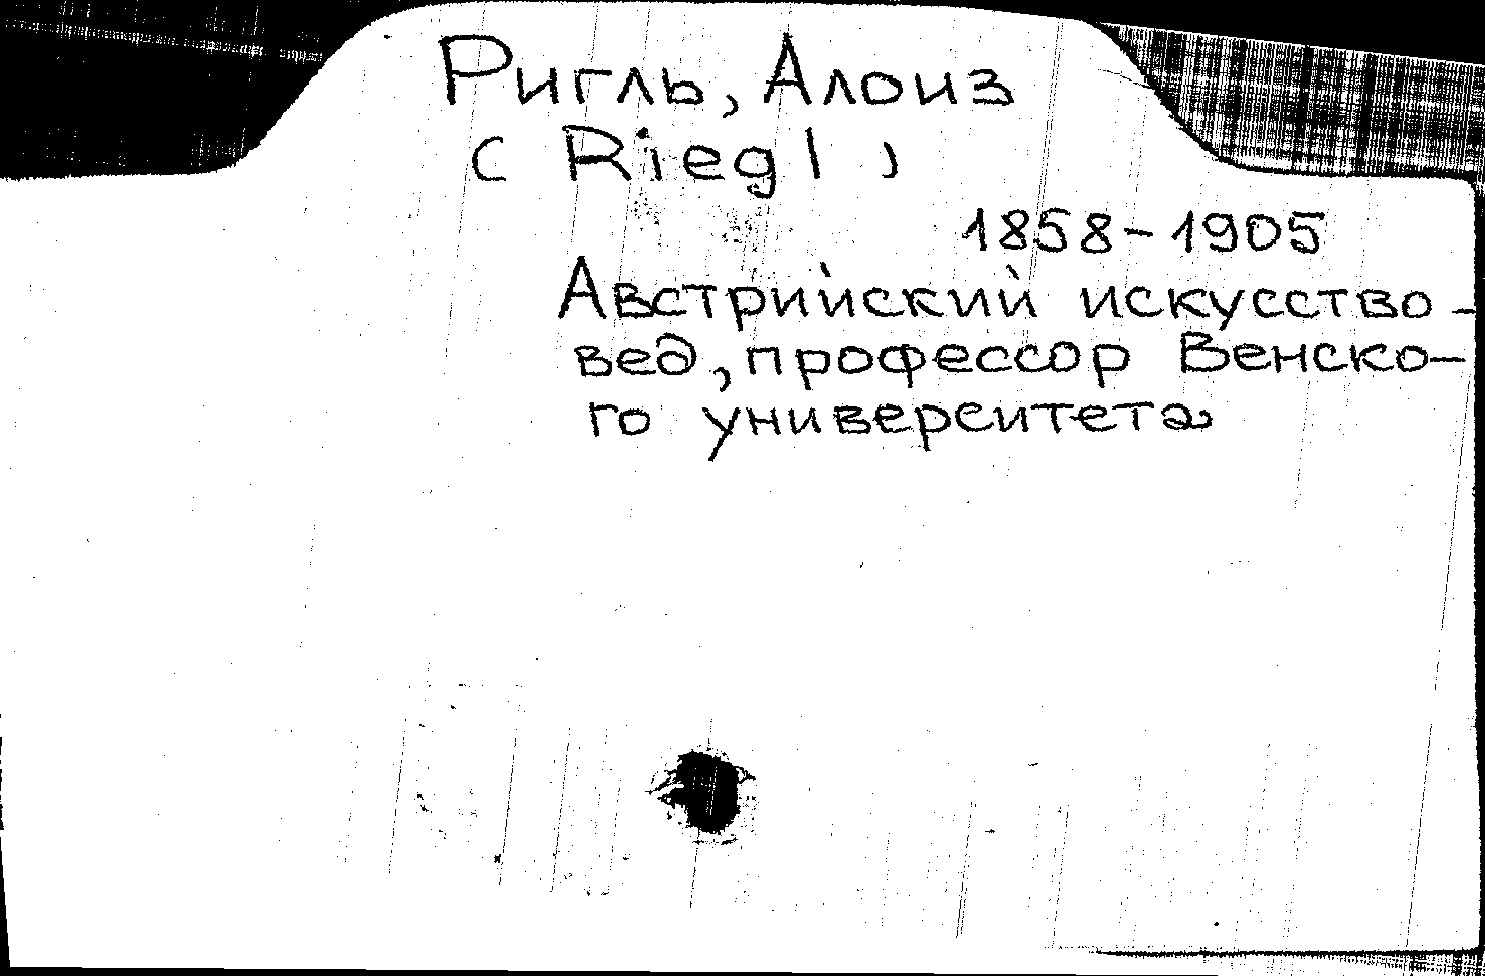 Ригль, Алоиз
(Riegl)
1858-1905
Австрийский искусство-
вед, профессор Венско-
го университета